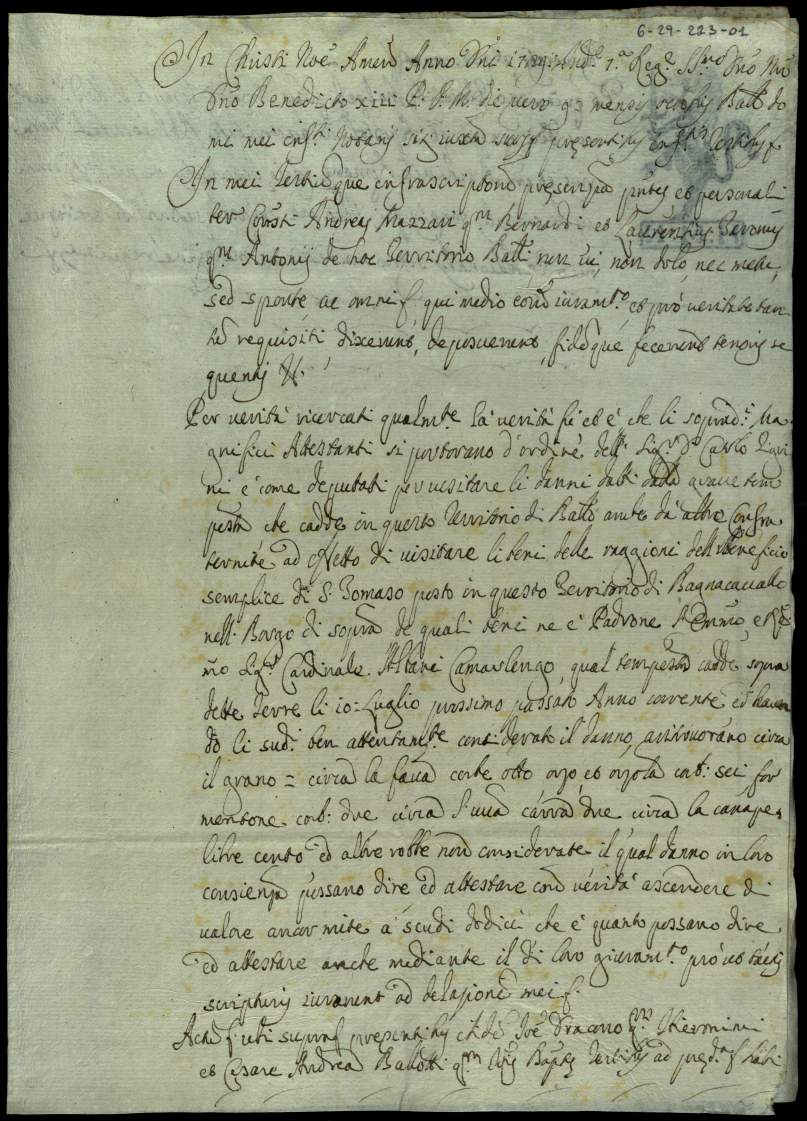 6-29-223-01
In Christi Noẽ Amen Anno Dñi 1729: Ind.e 7.a Reg.e SS.mo Dño Nrõ
Dño Benedicto xiii P. O. M. die vero 9: mensis octobris Batt: do
mi mei infr.ti Notarij sit: iuxta suos presentibus infr.tis testibus f.
In mei testiumque infrascriptorum presentia pntes et personali
ter Const: Andreas Mazzari q.m Bernardi et Laurentius
q.m Antonij de hoc Territorio Batt: non vi, non dolo, nec metu,
sed sponte ac omni f. qui medio eorum iuram.to et pro veritate tan
tum requisiti dixerunt, deposuerunt, fidemque fecerunt tenoris se
quentis H.
Per verità ricercati qualm.te la verità fù et è che li soprad.i Ma
gnifici Attestanti si portorano d'ordine dell. Sig.r D. Carlo
ni è come deputati per visitare li danni dati dalla grave tem
pesta che cadde in questo Territorio di Batt: anche da altre Confra
ternite ad effetto di visitare li beni delle raggioni dell Beneficio
semplice di S. Tomaso posto in questo Territorio di Bagnacavallo
nell. Borgo di sopra de quali beni ne è Padrone l'Emmo e R
mo Sig.r Cardinale Albani Camarlengo, qual tempesta cadde sopra
dette Terre li 10: Luglio prossimo passato Anno corrente ed haven
do li sud.i ben attentam.te considerato il danno, circa
il grano = circa la fava corbe otto orzo et orzola corb: sei for
mentone corb: due circa l'uva carra due circa la canape
libre cento ed altre robbe non considerate il qual danno in loro
consienza possano dire ed attestare con verità ascendere di
valore a scudi dodici che è quanto possano dire
ed attestare anche mediante il di loro giuram.to pro ut tactis
scripturis iurarunt ad delationem mei f.
Actum f. ubi supra f. presentibus Joẽ q.m Hieronimi
et Cesare Andrea Ballotti q.m Bapte Testibus ad pred.a f. habi